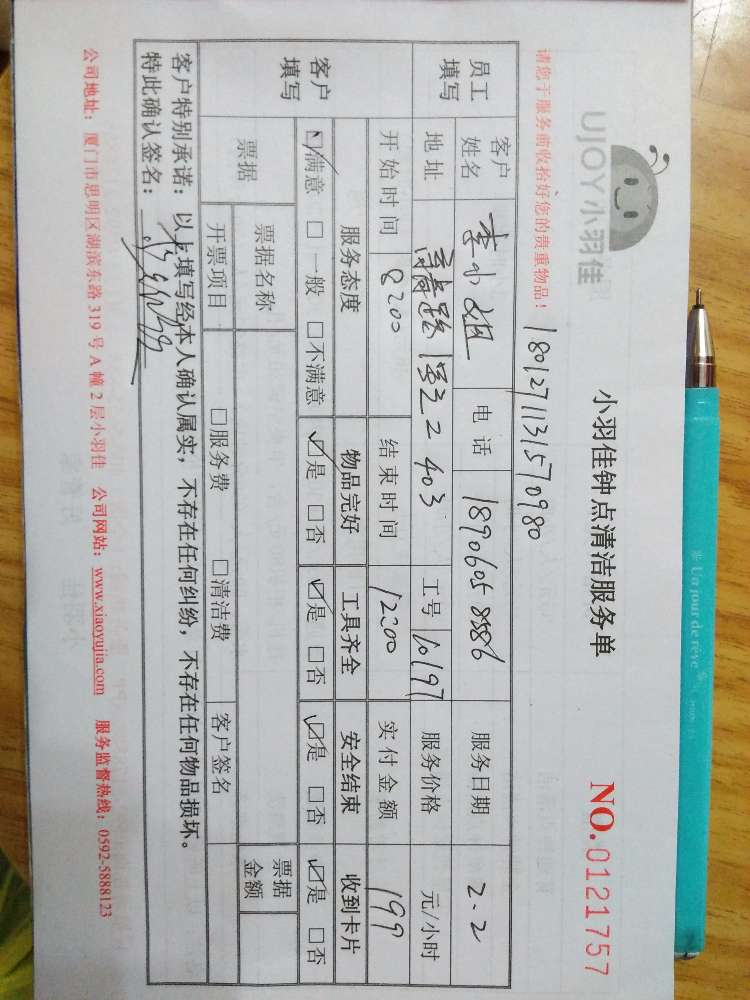 UJOY小羽佳
小羽佳钟点清洁服务单
NO.0121757
请您于服务前收拾好您的贵重物品！
1801271131570980
员工填写
客户姓名 李小姐 电话 服务日期 2.2
地址 2 403 工号 10197 服务价格 元/小时
开始时间 8:00 结束时间 12:00 实付金额 199
客户填写
服务态度 物品完好 工具齐全 安全结束 收到卡片
☑满意 □一般 □不满意 ☑是 □否 ☑是 □否 ☑是 □否 ☑是 □否
票据 票据名称 票据金额
开票项目 □服务费 □清洁费 客户签名
客户特别承诺：以上填写经本人确认属实，不存在任何纠纷，不存在任何物品损坏。
特此确认签名：
公司地址：厦门市思明区湖滨东路 319 号 A 幢 2 层小羽佳 公司网站：www.xiaoyujia.com 服务监督热线：0592-5888123
Un jour de rêve